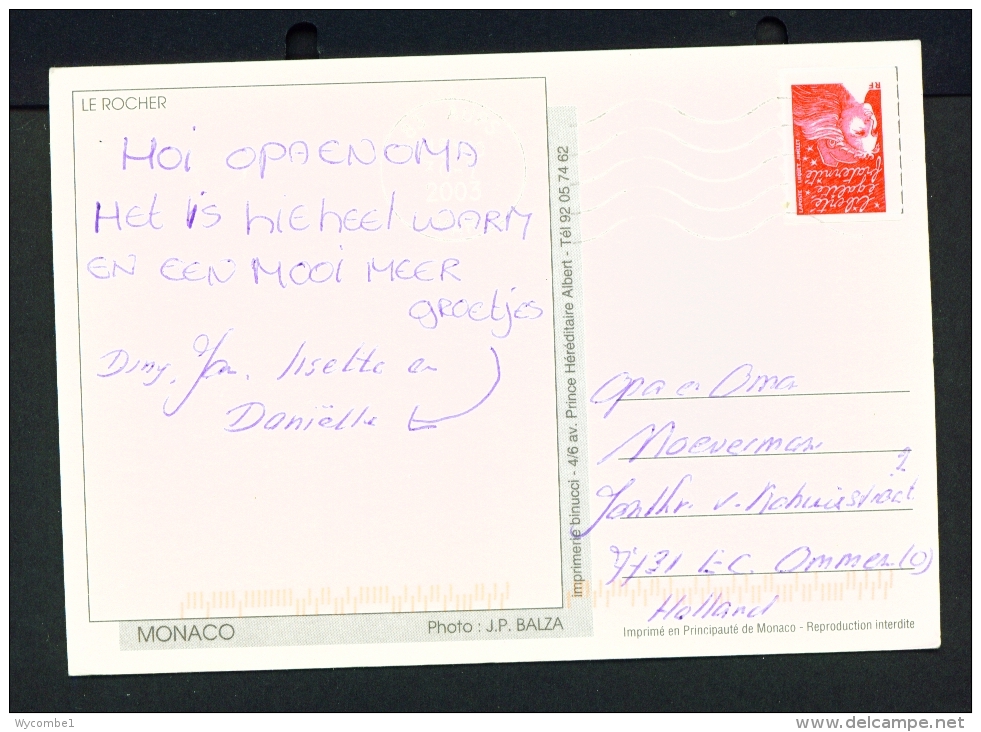 LE ROCHER
HOI OPA EN OMA
HET IS hiEhEEl WARM
EN EEN MOOI MEER
GROETJES
Diny, Jan, lisette en
Daniëlle
MONACO
Photo : J.P. BALZA
imprimerie binucci - 4/6 av. Prince Héréditaire Albert - Tél 92 05 74 62
2003
RF
liberté
égalité
fraternité
Opa en Oma
Moeverman
Jonkhr. v. 2
7731 E.C. Ommen (O)
Holland
Imprimé en Principauté de Monaco - Reproduction interdite
Wycombe1
delcampe.net